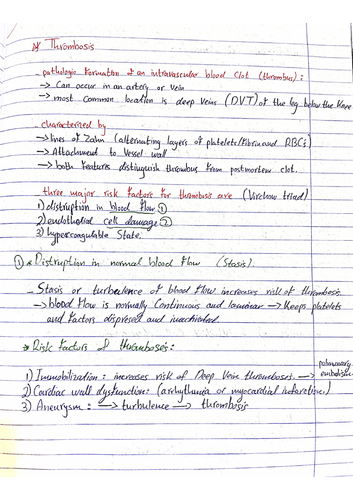 Thrombosis
- pathologic Formation of an intravascular blood Clot (thrombus):
→ Can occur in an artery or Vein
→ most Common location is deep Veins (DVT) of the leg below the Knee
- characterized by
→ lines of Zahn (alternating layers of platelets/Fibrin and RBCs)
→ Attachment to Vessel wall
→ both Features distinguish thrombus From postmortem clot.
three major risk Factors for thrombosis are (Virchow triad)
1) distruption in blood Flow ①
2) endothelial cell damage ②
3) hypercoagulable State.
① * Distruption in normal blood Flow (Stasis).
- Stasis or turbulence of blood Flow increases risk of thrombosis.
→ blood Flow is normally Continuous and laminar → Keeps platelets
and Factors dispresed and inactivated
* Risk Factors of thrombosis:
1) Immobilization: increases risk of Deep Vein thrombosis. → pulmonary embolism
2) Cardiac wall dysfunction: (arrhythmia or myocardial infarction)
3) Aneurysm: → turbulence → thrombosis